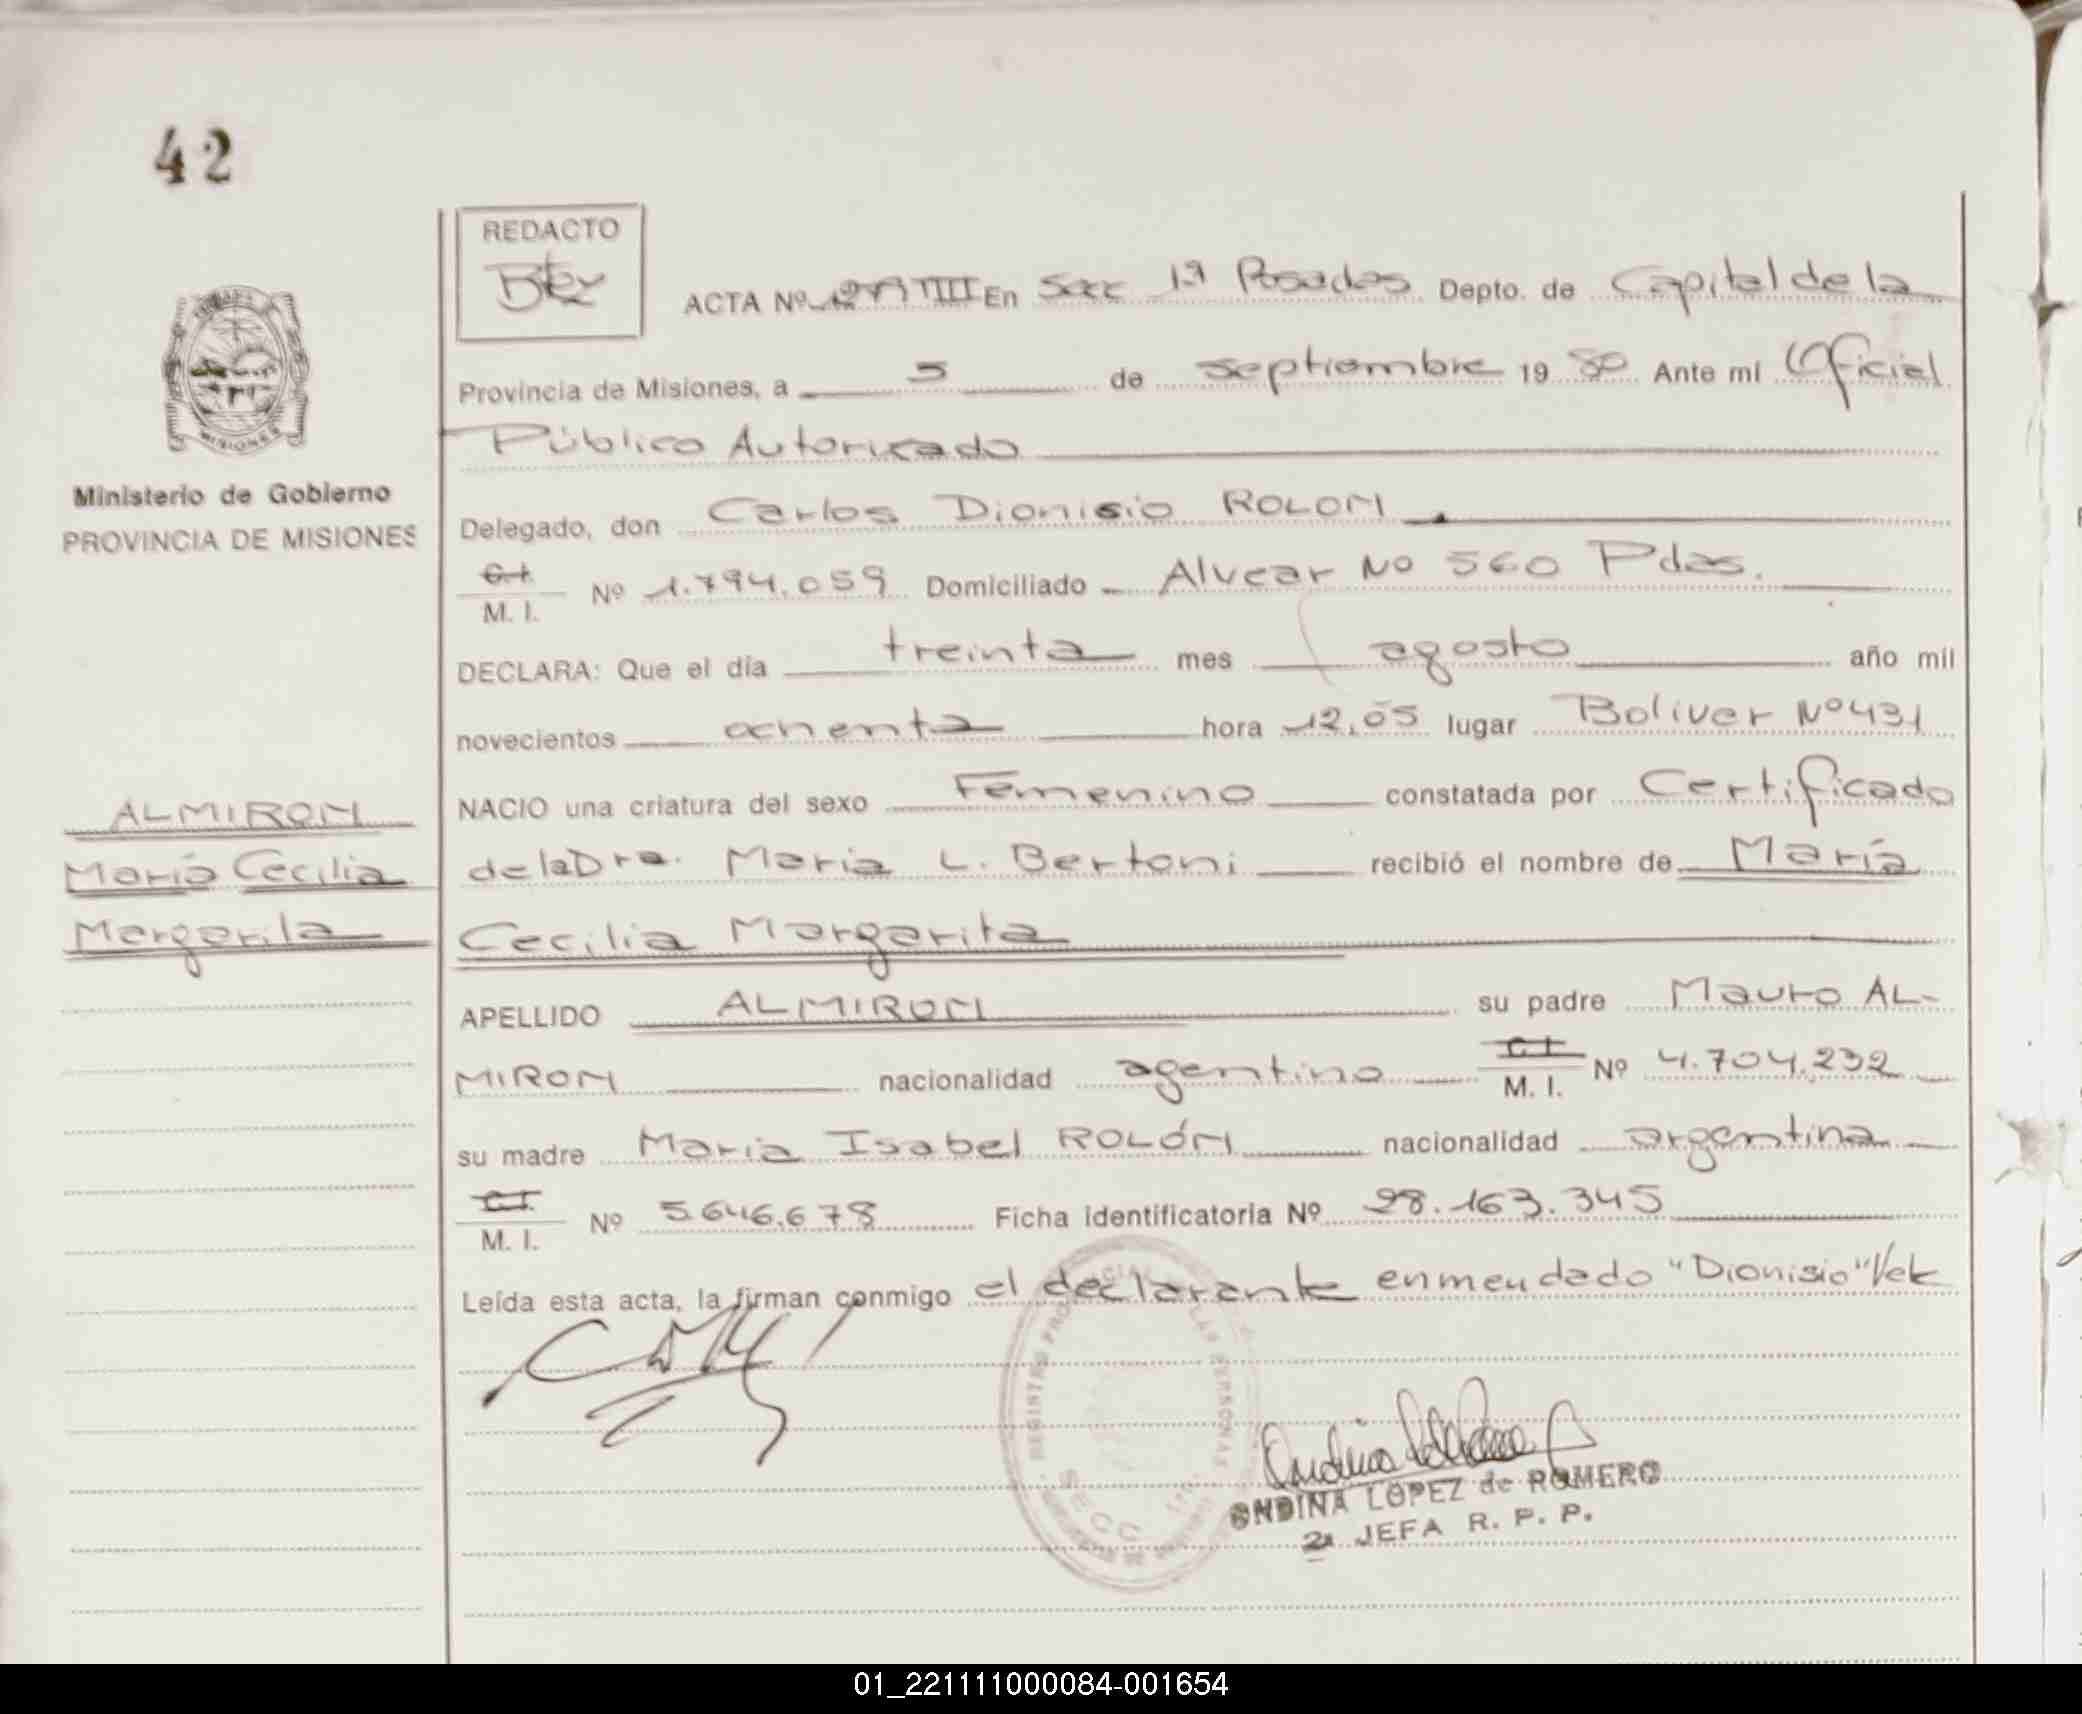 42
REDACTO
ACTA Nº En Secc 1ª Posadas Depto. de Capital de la
Provincia de Misiones, a 5 de septiembre 1980 Ante mi Oficial
Público Autorizado
Ministerio de Gobierno
PROVINCIA DE MISIONES
Delegado, don Carlos Dionisio ROLON
C.I.
M. I. Nº 1.794.059 Domiciliado Alvear No 560 Pdas.
DECLARA: Que el día treinta mes agosto año mil
novecientos ochenta hora 12,05 lugar Bolivar Nº 431
NACIO una criatura del sexo Femenino constatada por Certificado
de la Dra. Maria L. Bertoni recibió el nombre de María
Cecilia Margarita
ALMIRON
María Cecilia
Margarita
APELLIDO ALMIRON su padre Mauro AL-
MIRON nacionalidad agentino C.I. M. I. Nº 4.704.232
su madre Maria Isabel ROLÓN nacionalidad argentina
C.I.
M. I. Nº 5.646.678 Ficha identificatoria Nº 28.163.345
Leída esta acta, la firman conmigo el declarante enmendado "Dionisio" Vale
REGISTRO PROVINCIAL DE LAS PERSONAS
SECC. 1ra.
ONDINA LOPEZ de ROMERO
2a JEFA R. P. P.
01_221111000084-001654